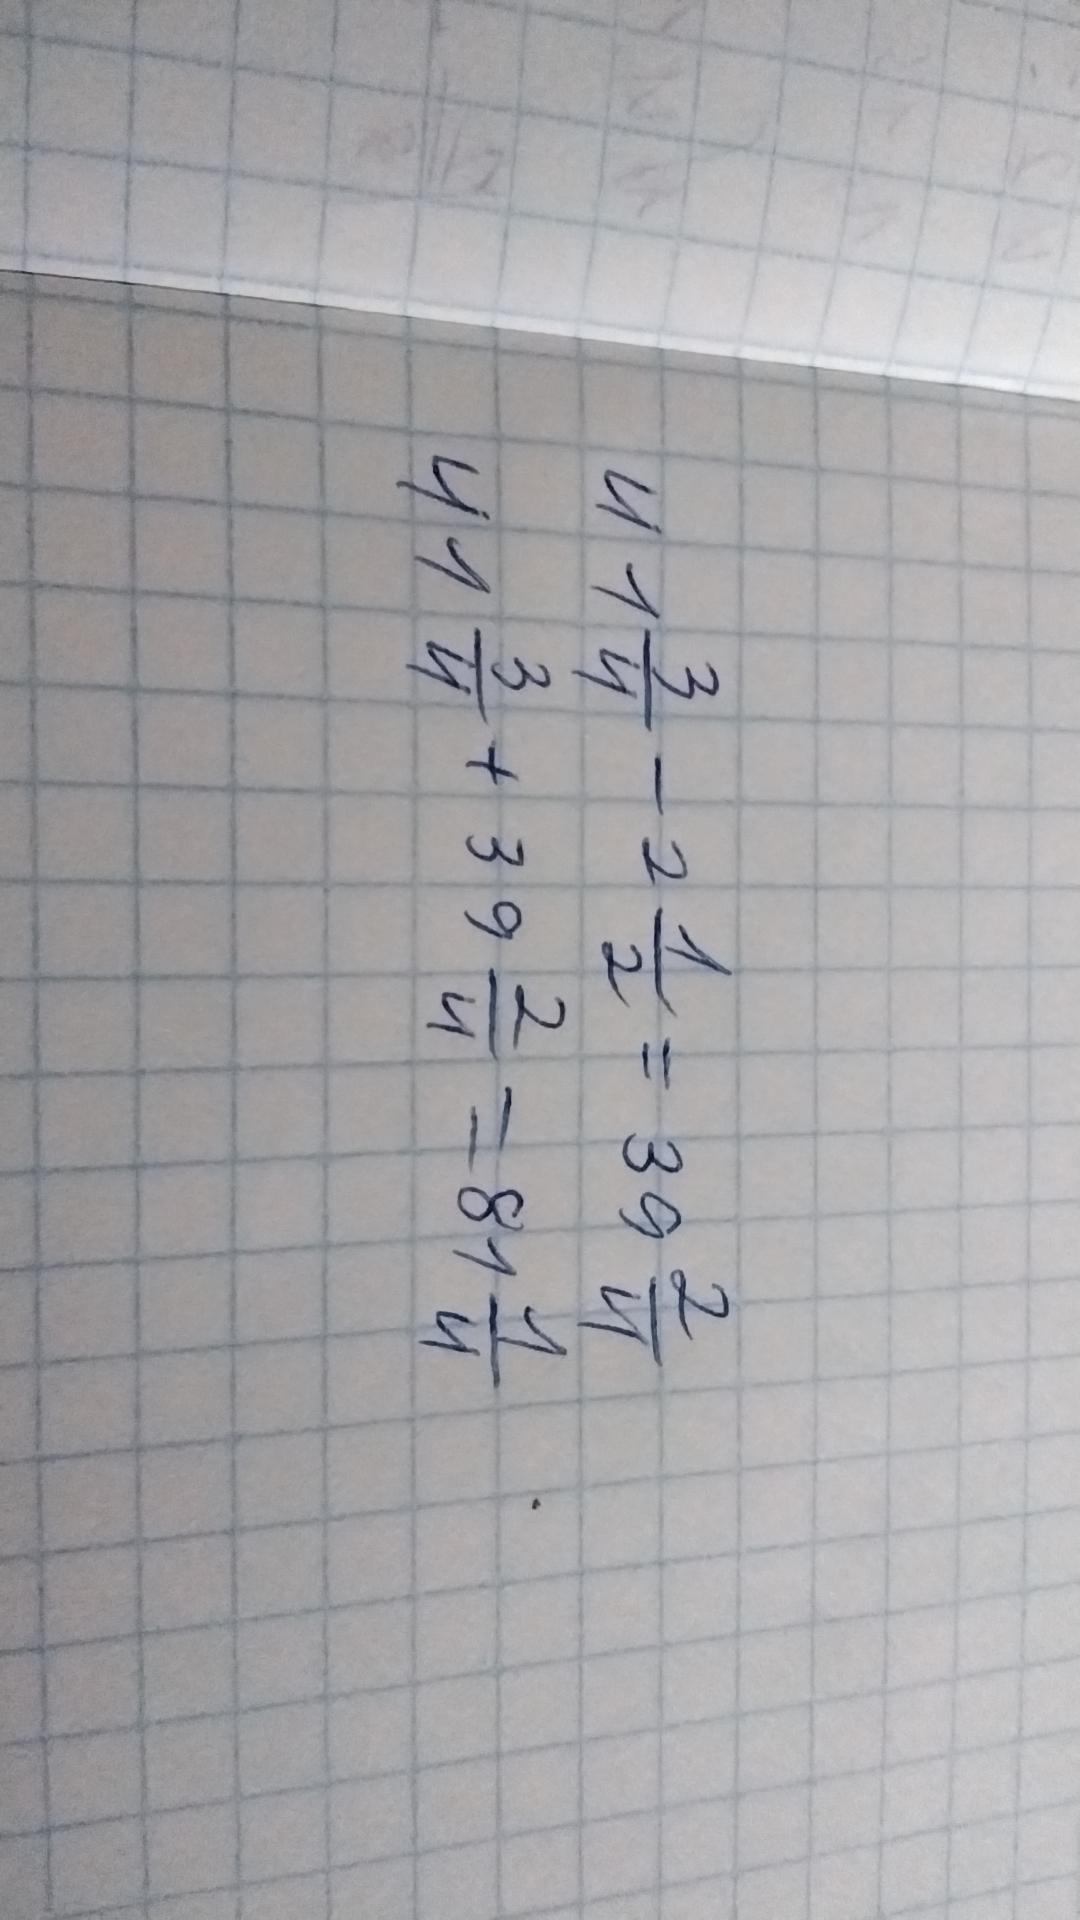 41 3/4 - 2 1/2 = 39 2/4
41 3/4 + 39 2/4 = 81 1/4